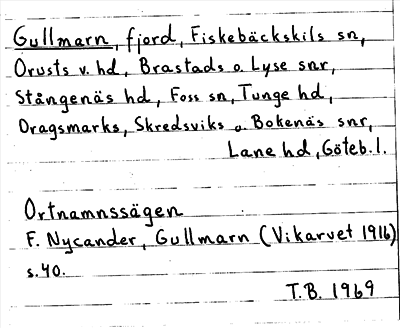 Gullmarn, fjord, Fiskebäckskils sn,
Orusts v. hd, Brastads o. Lyse snr,
Stångenäs hd, Foss sn, Tunge hd,
Dragsmarks, Skredsviks o. Bokenäs snr,
Lane hd, Göteb. l.
Ortnamnssägen
F. Nycander, Gullmarn (Vikarvet 1916)
s. 40.
T.B. 1969